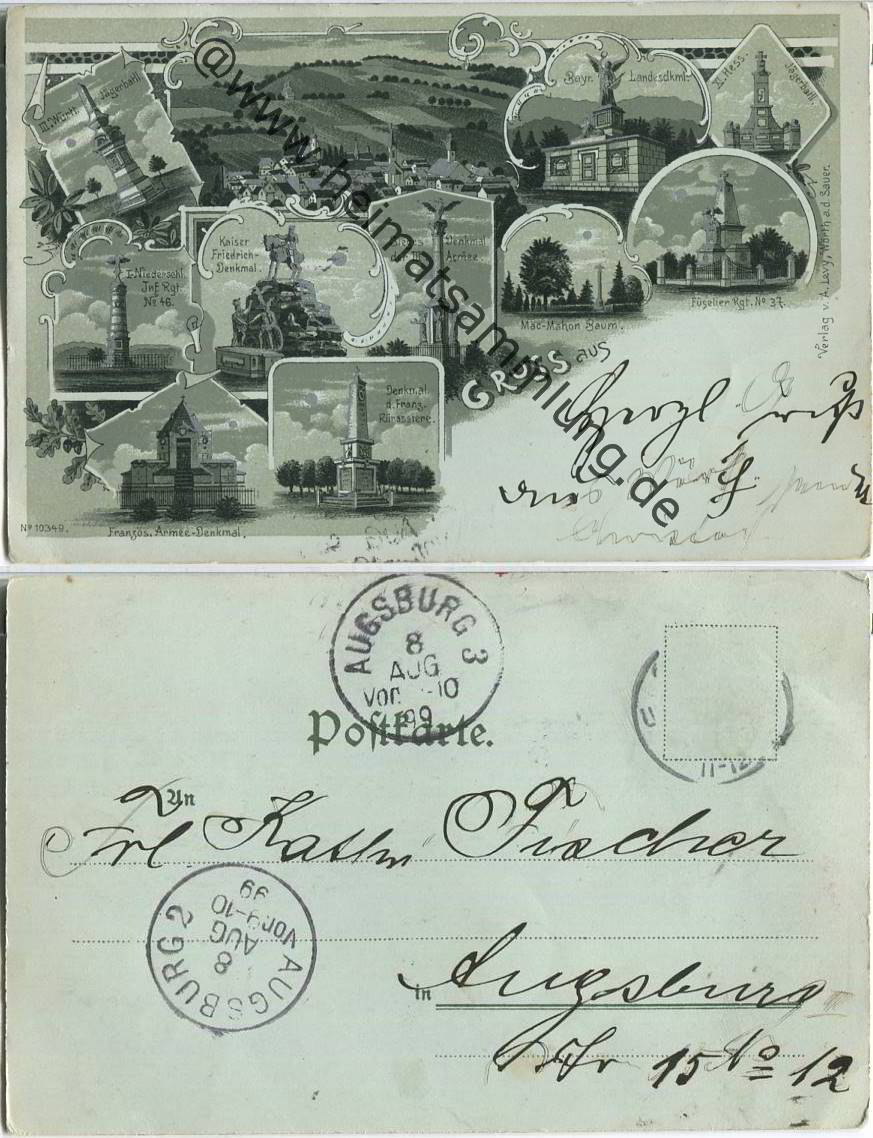 III. Württ. Jägerbatl.
Bayr. Landesdkml.
XI. Hess. Jägerbatl.
I. Niederschl.
Inf. Rgt.
No 46.
Kaiser
Friedrich-
Denkmal.
Sieges Denkmal
d. III. Armee
Mac-Mahon Baum.
Füselier Rgt. No 37.
Verlag v. A. Levy, Wörth a. d. Sauer.
GRUSS aus
Denkmal
d. Franz.
Kürassiere.
No 10349.
Französ. Armee-Denkmal.
Herzl. Gruß
aus
@www.heimatsammlung.de
AUGSBURG 3
8
AUG
Vor. -10
99
Postkarte.
11-12
An
Frl Kathn Fischer
AUGSBURG 2
8
AUG
Vor. 9-10
99
in Augsburg
15 No 12